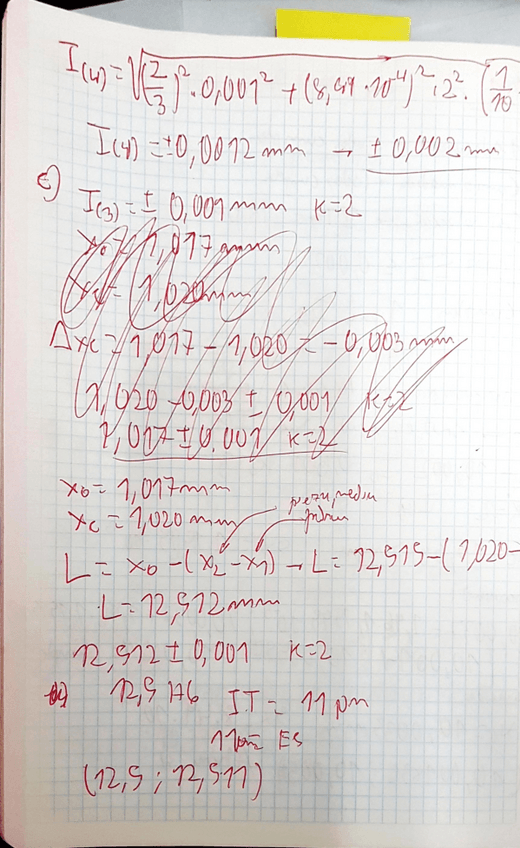 I(4) = √((2/3)² · 0,001² + (8,49 · 10⁻⁴)² · 2² · (1/10
I(4) = ±0,0012 mm → ± 0,002 mm
c) I(3) = ± 0,001 mm K=2
x₀ = 1,017 mm
1,020 mm
Δxc = 1,017 - 1,020 = -0,003 mm
1,020 - 0,003 ± 0,001 K=2
1,017 ± 0,001 K=2
x₀ = 1,017 mm
xc = 1,020 mm
L = x₀ - (x₂ - x₁) → L = 12,515 - (1,020 -
L = 12,512 mm
12,512 ± 0,001 K=2
12,5 H6 IT = 11 µm
11 µm = ES
(12,5 ; 12,511)